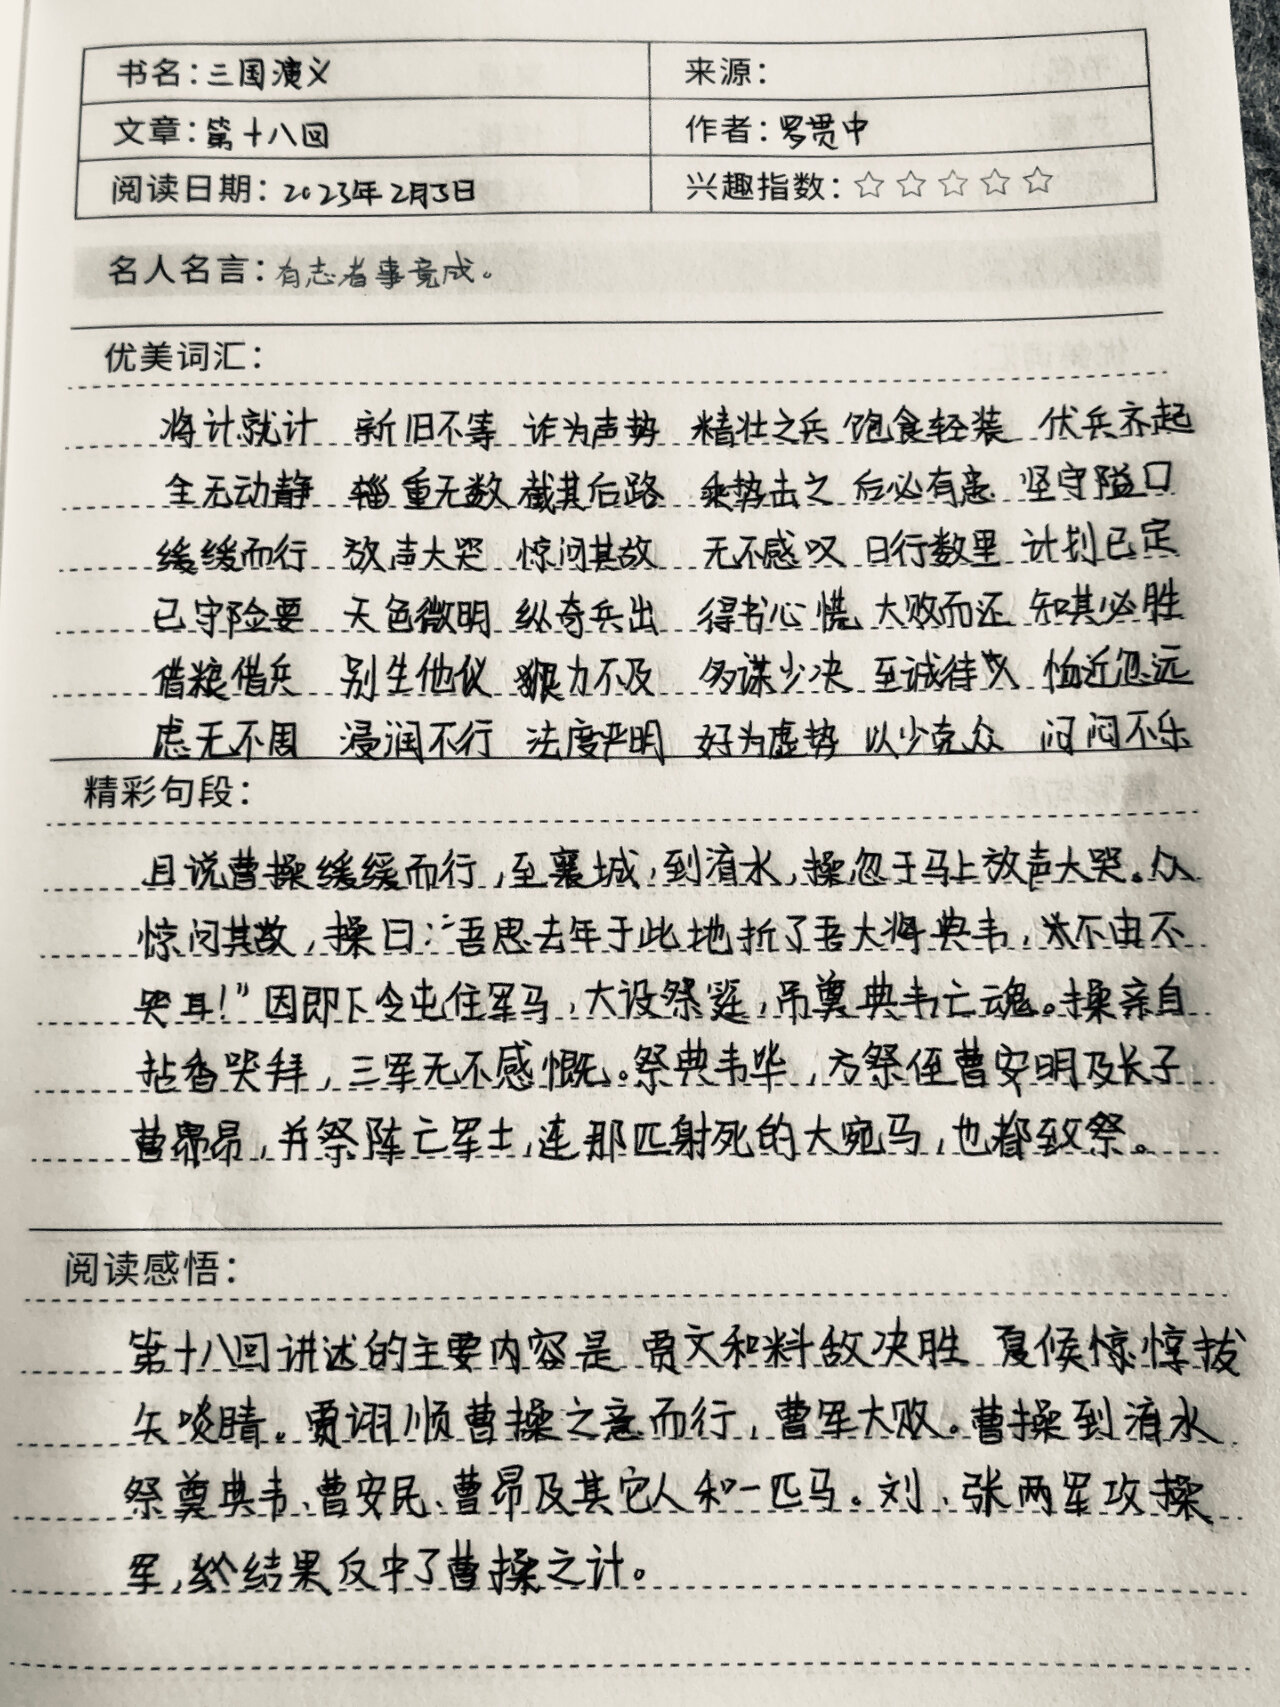 书名：三国演义 来源：
文章：第十八回 作者：罗贯中
阅读日期：2023年2月3日 兴趣指数：☆☆☆☆☆
名人名言：有志者事竟成。
优美词汇：
将计就计 新旧不等 诈为声势 精壮之兵 饱食轻装 伏兵齐起
全无动静 辎重无数 截其后路 乘势击之 后必有意 坚守隘口
缓缓而行 放声大哭 惊问其故 无不感叹 日行数里 计划已定
已守险要 天色微明 纵奇兵出 得书心慌 大败而还 知其必胜
借粮借兵 别生他仪 狠力不及 多谋少决 至诚待人 恤近忽远
虑无不周 浸润不行 法度严明 好为虚势 以少克众 闷闷不乐
精彩句段：
且说曹操缓缓而行，至襄城，到淯水，操忽于马上放声大哭。众
惊问其故，操曰：“吾思去年于此地折了吾大将典韦，不由不
哭耳！”因即下令屯住军马，大设祭筵，吊奠典韦亡魂。操亲自
拈香哭拜，三军无不感慨。祭典韦毕，方祭侄曹安明及长子
曹昂昂，并祭阵亡军士，连那匹射死的大宛马，也都致祭。
阅读感悟：
第十八回讲述的主要内容是 贾文和料敌决胜 夏候惊惇拔
矢啖睛。贾诩顺曹操之意而行，曹军大败。曹操到淯水
祭奠典韦、曹安民、曹昂及其它人和一匹马。刘、张两军攻操
军，结果反中了曹操之计。